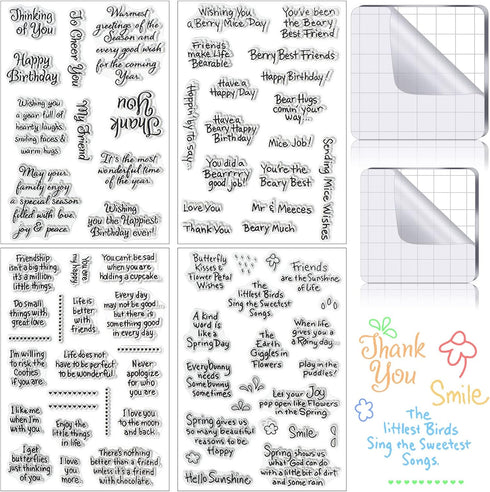 Thinking
of You
Happy
Birthday
To Cheer You
Warmest
greetings of the
Season and
every good wish
for the coming
Year.
Wishing you
a year full of
hearty laughs,
smiling faces &
warm hugs.
My Friend
Thank
You
It's the most
wonderful time
of the year.
May your
family enjoy
a special season
filled with love,
joy & peace.
Wishing
you the Happiest
Birthday ever!
Wishing You
a Berry Mice Day
You've been
the Beary
Best Friend
Friends
make Life
Bearable
Berry Best Friend
Happy Birthday!
Hoppin' by to say...
Have a
Happy Day
Bear Hugs
comin' your
way...
Have a
Beary Happy
Birthday
Mice Job!
Sending Mice Wishes
You did a
Bearrrry
good job!
You're the
Beary Best
Love You
Mr & Meeces
Thank You
Beary Much
Friendship
isn't a big thing,
it's a million
little things.
You are
my happy
You can't be sad
when you are
holding a cupcake
Do small
things with
great love.
Life is
better
with
friends.
Every day
may not be good...
but there is
something good
in every day.
I'm willing
to risk the
Cooties
if you are.
Life does not
have to be perfect
to be wonderful.
Never
apologize
for who
you are.
I like me
when I'm
with you.
Enjoy the
little things
in life.
I love you
to the moon
and back.
I get
butterflies
just thinking
of you.
I love
you
more.
There's nothing
better than a friend,
unless it's a friend
with chocolate.
Butterfly
Kisses &
Flower Petal
Wishes
Friends
are the Sunshine
of life
The
littlest Birds
Sing the Sweetest
Songs.
A kind
word is
like a
Spring Day
The
Earth
Giggles in
Flowers
When life
gives you a
Rainy day...
play in the
puddles!
Every Bunny
needs
Some bunny
Sometimes
Let your Joy
pop open like Flowers
in the Spring.
Spring gives us
so many beautiful
reasons to be
Happy
Smile
Spring shows us
what God can do
with a little bit of dirt
and some rain.
Hello Sunshine
Thank
You
Smile
The
littlest Birds
Sing the Sweetest
Songs.